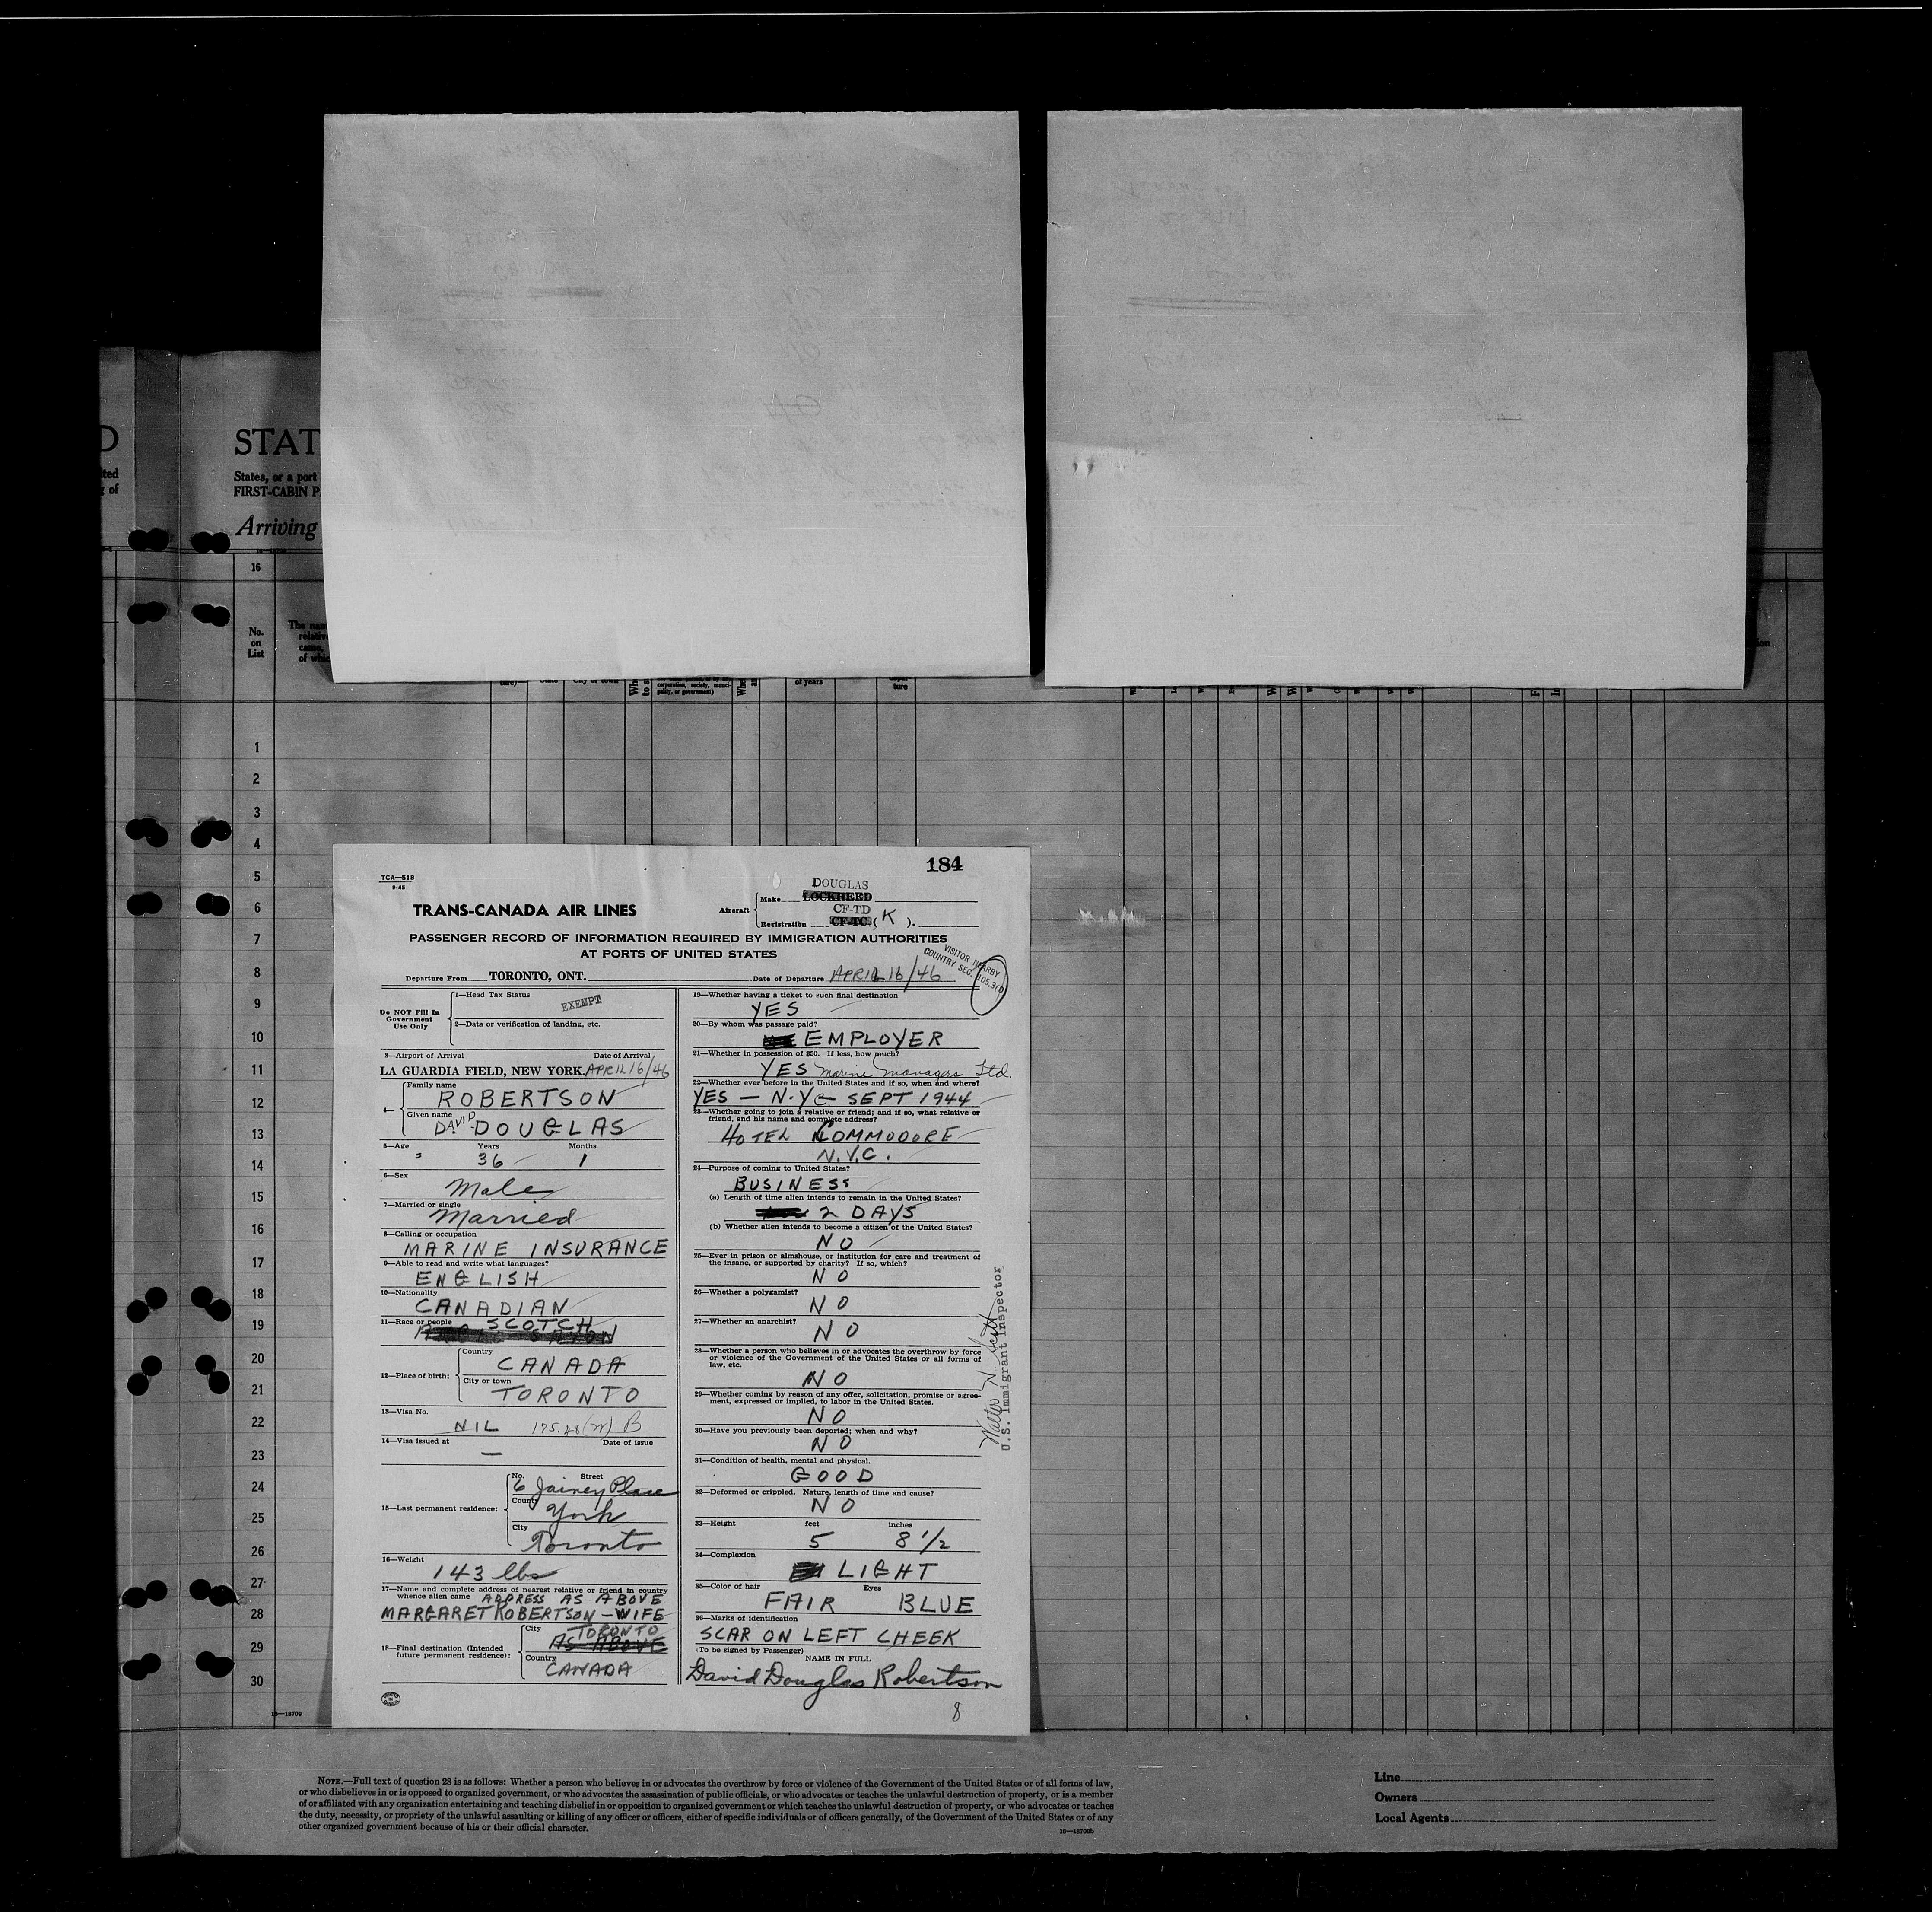 D
STAT
States, or a port
FIRST-CABIN P
Arriving
ted
g of
16
No.
on
List
The nam
relativ
came,
of whic
corporation, society, munici-
pality, or government)
of years
ture
1
2
3
4
5
6
7
8
9
10
11
12
13
14
15
16
17
18
19
20
21
22
23
24
25
26
27
28
29
30
184
TCA—518
9-45
TRANS-CANADA AIR LINES
Aircraft
DOUGLAS
Make LOCKHEED
CF-TD
Registration CF-TC (K).
PASSENGER RECORD OF INFORMATION REQUIRED BY IMMIGRATION AUTHORITIES
AT PORTS OF UNITED STATES
VISITOR NEARBY
COUNTRY SEC. 105.3(I)
Departure From TORONTO, ONT. Date of Departure APRIL 16/46
Do NOT Fill In
Government
Use Only
1—Head Tax Status
EXEMPT
2—Data or verification of landing, etc.
3—Airport of Arrival Date of Arrival
LA GUARDIA FIELD, NEW YORK. APRIL 16/46
4—
Family name
ROBERTSON
Given name
DAVID DOUGLAS
5—Age Years Months
36 1
6—Sex
Male
7—Married or single
Married
8—Calling or occupation
MARINE INSURANCE
9—Able to read and write what languages?
ENGLISH
10—Nationality
CANADIAN
11—Race or people
SCOTCH
12—Place of birth:
Country
CANADA
City or town
TORONTO
13—Visa No.
NIL 175.28 (m) B
14—Visa issued at Date of issue
—
15—Last permanent residence:
No. Street
6 Jainey Place
County
York
City
Toronto
16—Weight
143 lbs
17—Name and complete address of nearest relative or friend in country
whence alien came ADDRESS AS ABOVE
MARGARET ROBERTSON – WIFE
18—Final destination (Intended
future permanent residence):
City
TORONTO
AS ABOVE
Country
CANADA
19—Whether having a ticket to such final destination
YES
20—By whom was passage paid?
EMPLOYER
21—Whether in possession of $50. If less, how much?
YES Marine Managers Ltd.
22—Whether ever before in the United States and if so, when and where?
YES – N.Y.C – SEPT 1944
23—Whether going to join a relative or friend; and if so, what relative or
friend, and his name and complete address?
HOTEL COMMODORE
N.Y.C.
24—Purpose of coming to United States?
BUSINESS
(a) Length of time alien intends to remain in the United States?
2 DAYS
(b) Whether alien intends to become a citizen of the United States?
NO
25—Ever in prison or almshouse, or institution for care and treatment of
the insane, or supported by charity? If so, which?
NO
26—Whether a polygamist?
NO
27—Whether an anarchist?
NO
28—Whether a person who believes in or advocates the overthrow by force
or violence of the Government of the United States or all forms of
law, etc.
NO
29—Whether coming by reason of any offer, solicitation, promise or agree-
ment, expressed or implied, to labor in the United States.
NO
30—Have you previously been deported; when and why?
NO
31—Condition of health, mental and physical.
GOOD
32—Deformed or crippled. Nature, length of time and cause?
NO
33—Height feet inches
5 8 1/2
34—Complexion
LIGHT
35—Color of hair Eyes
FAIR BLUE
36—Marks of identification
SCAR ON LEFT CHEEK
(To be signed by Passenger)
NAME IN FULL
David Douglas Robertson
8
Walter N. Scott
U.S. Immigrant Inspector
16—18709
NOTE.—Full text of question 28 is as follows: Whether a person who believes in or advocates the overthrow by force or violence of the Government of the United States or of all forms of law,
or who disbelieves in or is opposed to organized government, or who advocates the assassination of public officials, or who advocates or teaches the unlawful destruction of property, or is a member
of or affiliated with any organization entertaining and teaching disbelief in or opposition to organized government or which teaches the unlawful destruction of property, or who advocates or teaches
the duty, necessity, or propriety of the unlawful assaulting or killing of any officer or officers, either of specific individuals or of officers generally, of the Government of the United States or of any
other organized government because of his or their official character.
16—18709b
Line
Owners
Local Agents